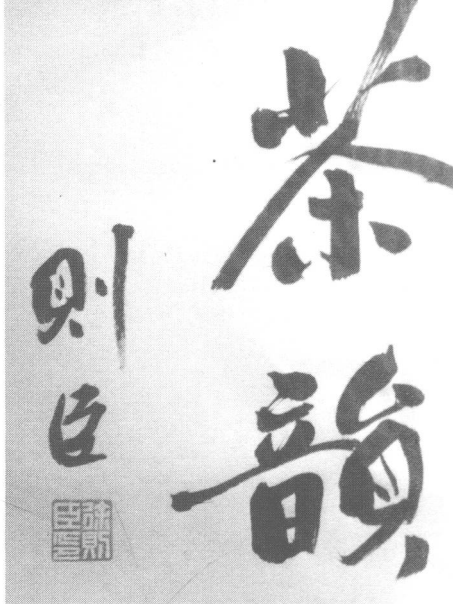 茶韻
則臣